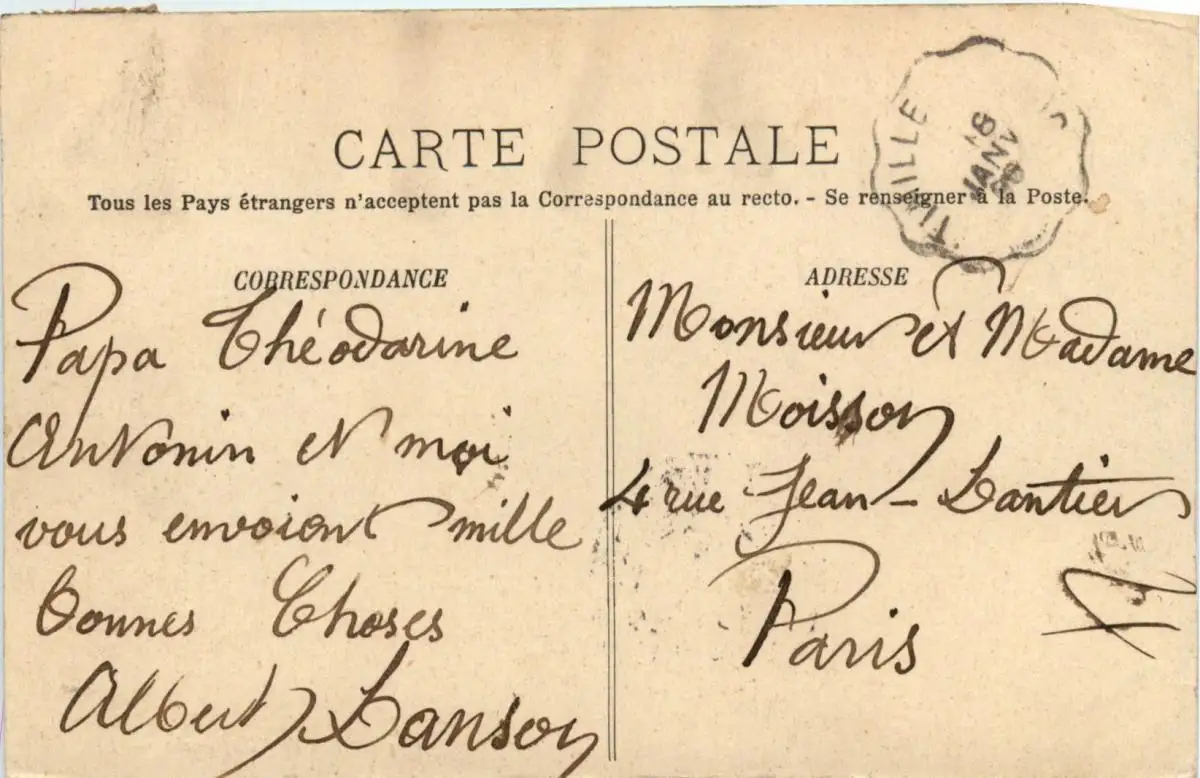 CARTE POSTALE
Tous les Pays étrangers n'acceptent pas la Correspondance au recto. - Se renseigner à la Poste.
CORRESPONDANCE
Papa Théodorine
Antonin et moi
vous envoient mille
bonnes Choses
Albert Lanson
ADRESSE
Monsieur et Madame
Moisson
4 rue Jean-Lantier
Paris
JANV